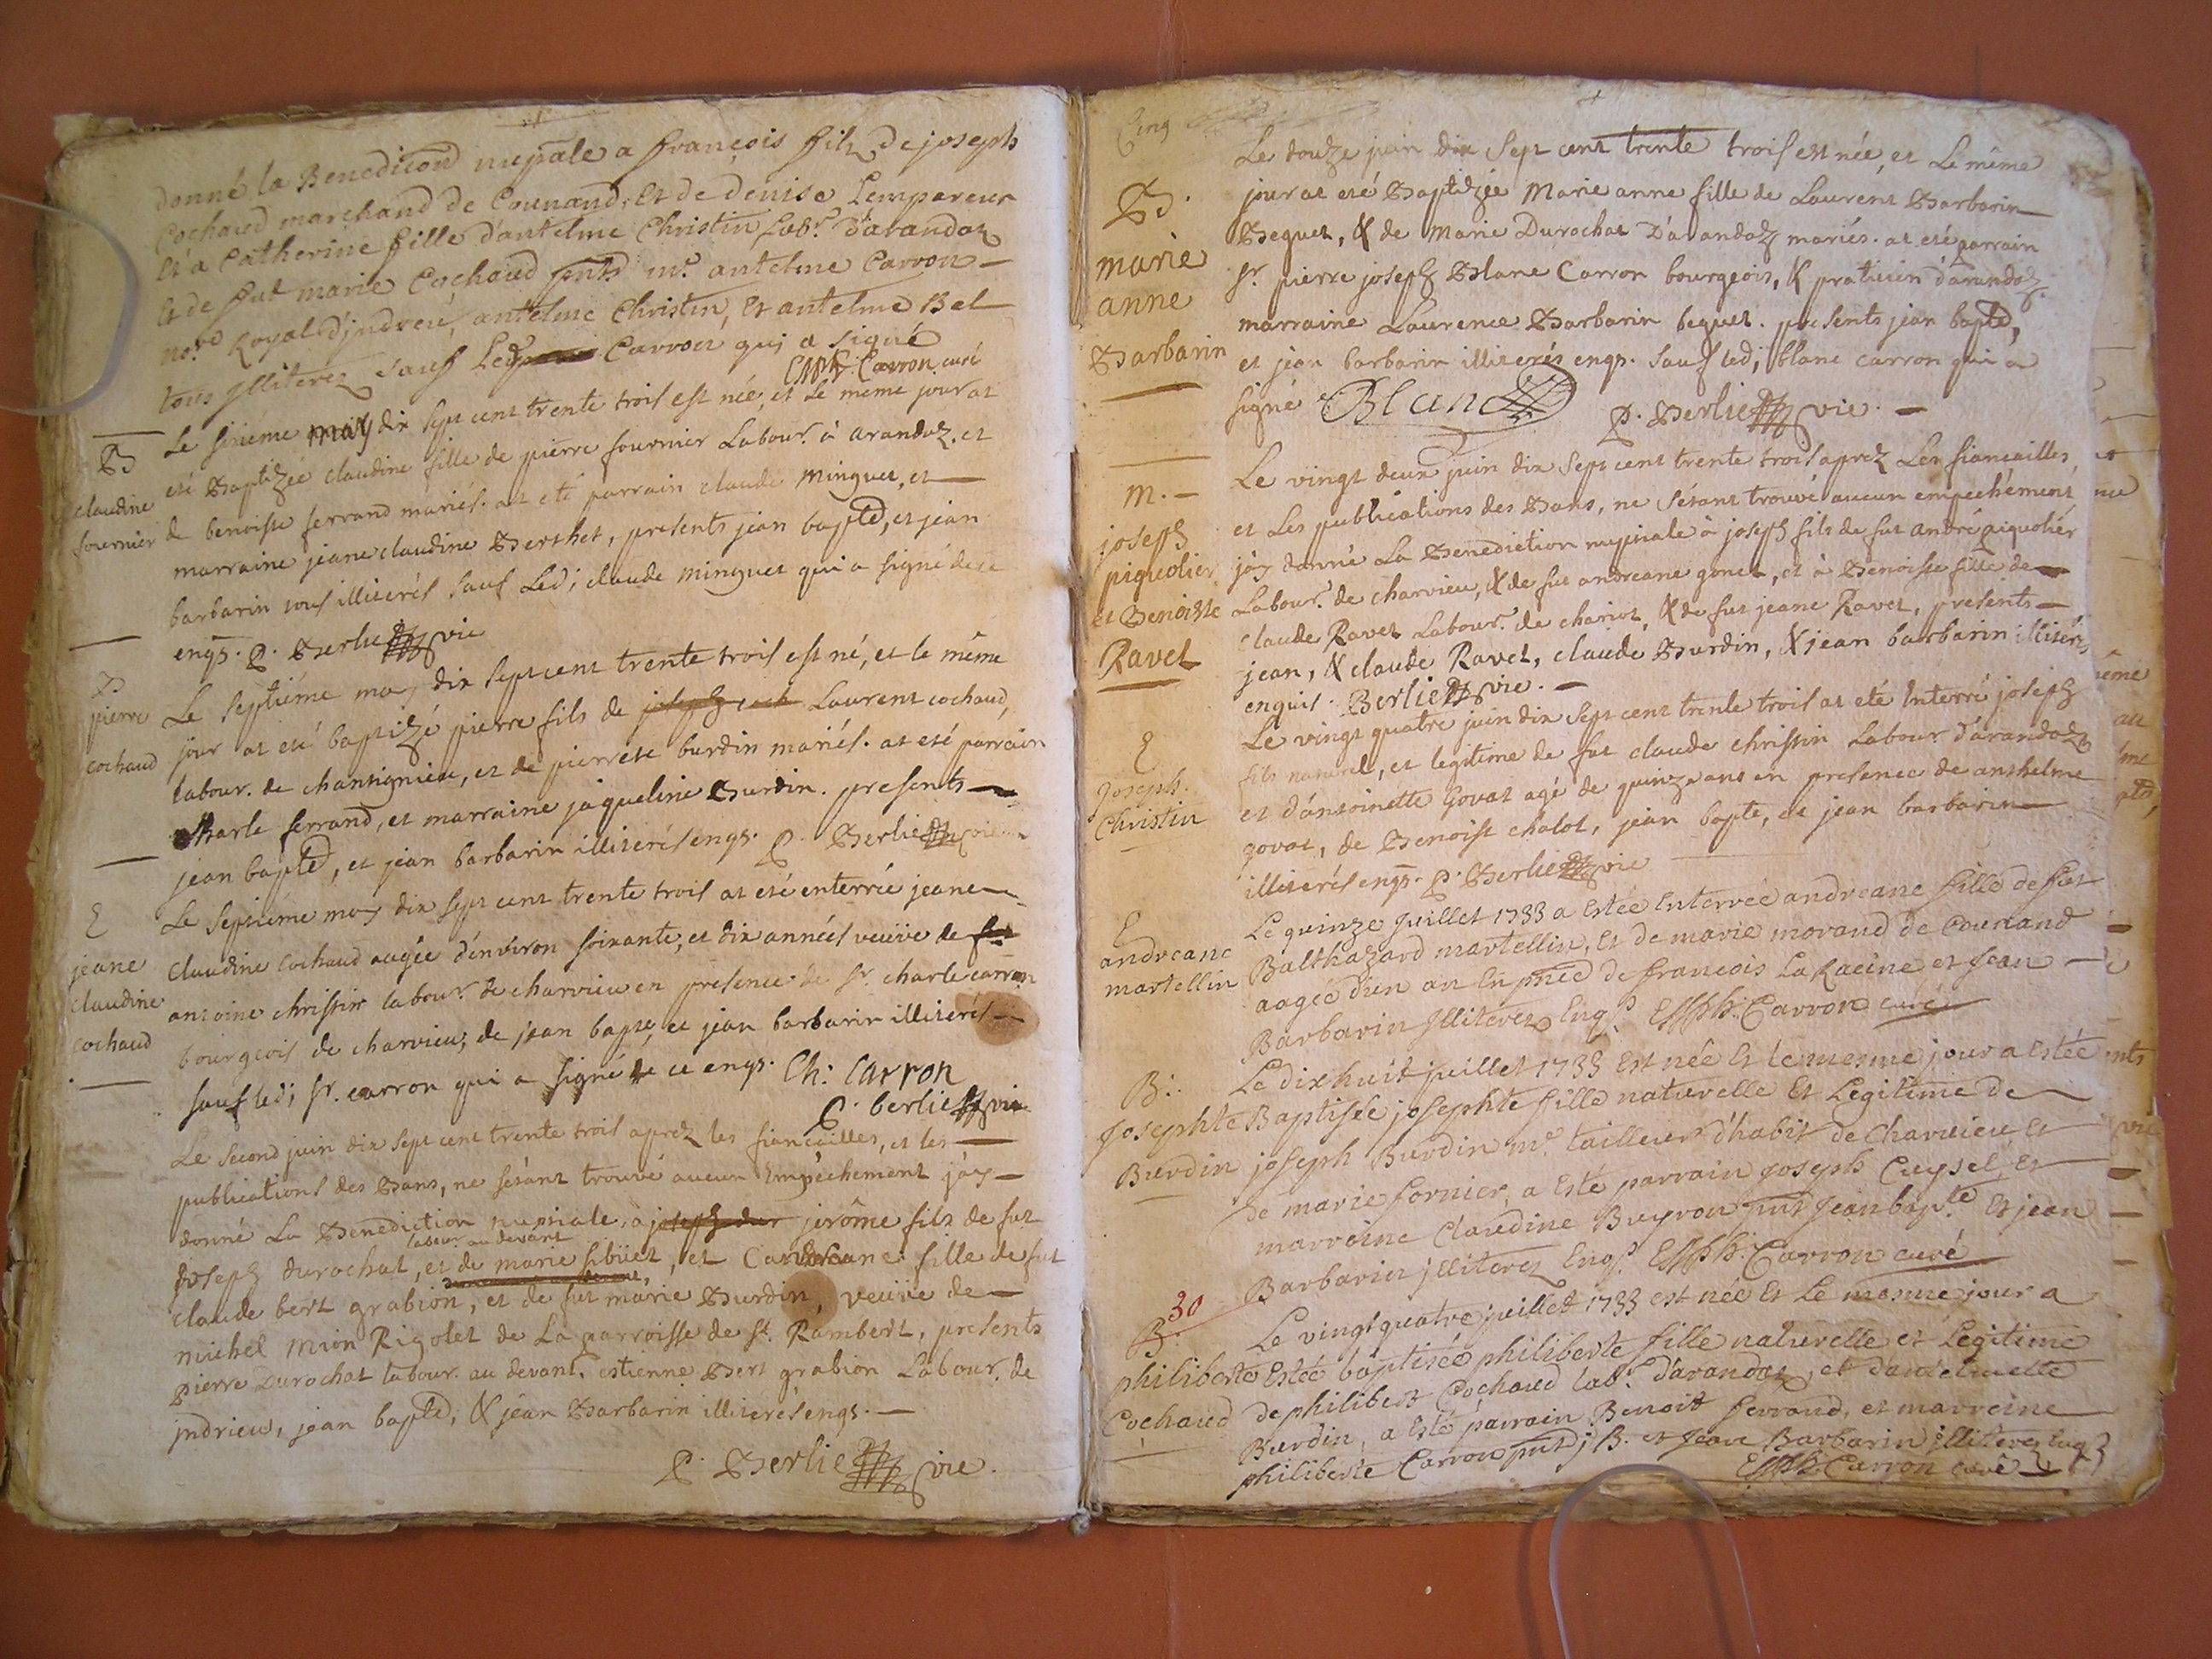 donné la Benediction nupale a françois filz de joseph
Cochaud marchand de Counand, Et de denise Lempereur
Et a Catherine fille d'antelme Christin Labr. d'arandaz
Et de fut marie Cochaud pnts me. antelme Carron
nore. Royal d'jndrieu, antelme Christin, Et antelme Bel
tous Jlliterez sauf Led Carron qui a signé
Carron curé
B
claudine
fournier
Le sixiéme may dix sept cent trente trois est née, et Le même jour at
eté Baptizée claudine fille de pierre fournier Labour. à arandaz, et
de benoiste ferrand mariés. at eté parrain claude minguet, et
marraine jeane claudine Berthet, presents jean baptd, et jean
barbarin tous illiterés sauf Led; claude minguet qui a signé de ce
enqs. P. Berlie vic
B
pierre
cochaud
Le septiéme may dix sept cent trente trois est né, et le même
jour at eté baptizé pierre fils de joseph coch Laurent cochaud,
labour. de chantignieu, et de pierrete burdin mariés. at eté parrain
charle ferrand, et marraine jaqueline Burdin. presents
jean baptd, et jean barbarin illiterés enqs. P. Berlie vic
E
jeane
claudine
cochaud
Le septiéme may dix sept cent trente trois at eté enterrée jeane
Claudine cochaud aagée d'environ soixante, et dix années veüve de fut
antoine christin labour. de charvieu en presence de sr. charle carron
bourgeois de charvieu, de jean bapte, et jean barbarin illiterés
sauf led; sr. carron qui a signé de ce enqs. Ch: Carron
P. berlie vic
Le second juin dix sept cent trente trois aprez les fiancailles, et les
publications des Bans, ne s'étant trouvé aucun Empêchement j'ay
donné La Benediction nupsiale, à joseph dur jerôme fils de fut
labour au devant
joseph durochat, et de marie sibüet, et Candreane fille de fut
claude bert grabion, et de fut marie Burdin, veüve de
michel mion Rigolet de La parroisse de St. Rambert, presents
pierre Durochat labour. au devant, estienne Bert grabion Labour. de
jndrieu, jean baptd, & jean Barbarin illiterés enqs.
P. Berlie vic.
Cinq
B.
marie
anne
Barbarin
Le douze juin dix sept cent trente trois est née, et Le même
jour at eté Baptizée Marie anne fille de Laurent Barbarin
Beguet, & de Marie Durochat D'arandaz mariés. at eté parrain
sr. pierre joseph Blanc Carron bourgeois, & praticien d'arandaz
marraine Laurence Barbarin beguet. presents jean baptd,
et jean barbarin illiterés enqs. sauf led; blanc carron qui a
signé Blanc P. Berlie vic.
m.
joseph
piquolier
et Benoiste
Ravet
Le vingt deux juin dix sept cent trente trois aprez Les fiancailles,
et Les publications des Bans, ne s'étant trouvé aucun empechément
j'ay donné La Benediction nupsiale à joseph fils de fut andré piquolier
Labour. de charvieu, & de fut andreane gonet, et à Benoiste fille de
claude Ravet Labour. de chariot, & de fut jeane Ravet, presents
jean, & claude Ravet, claude Burdin, & jean barbarin illiterés
enquis. Berlie vic.
E
Joseph.
Christin
Le vingt quatre juin dix sept cent trente trois at eté Interré joseph
fils naturel, et legitime de fut claude christin Labour. d'arandaz
et d'antoinette Govat agé de quinze ans en presence de anthelme
govat, de Benoist chalot, jean bapte, et jean barbarin
illiterés enqs. P. Berlie vic
E
andreane
martellin
Le quinze Juillet 1733 a Estée Enterrée andreane fille de fut
Balthazard martellin, Et de marie morand de Counand
aagée d'un an En pnce de francois La Racine et Jean
Barbarin Jlliterez Enqs. Carron curé
B:
Josephte
Burdin
Le dixhuit juillet 1733 Est née Et le mesme jour a Estée
Baptisée josephte fille naturelle Et Legitime de
joseph Burdin me. tailleur d'habit de Charvieu Et
de marie fornier, a Esté parrain joseph Cuysel, Et
marreine Claudine Buyron pnt Jean bapte. Et jean
Barbarin jlliterez Enqs. Carron curé
30
B.
philiberte
Cochaud
Le vingt quatre juillet 1733 est née Et Le mesme jour a
Estée baptisée philiberte fille naturelle et Legitime
de philibert Cochaud labr. d'arandaz, et d'antelmette
Burdin, a Esté parrain Benoit ferrand, et marreine
philiberte Carron pnt j B. et Jean Barbarin jlliterez Enqs
Carron curé